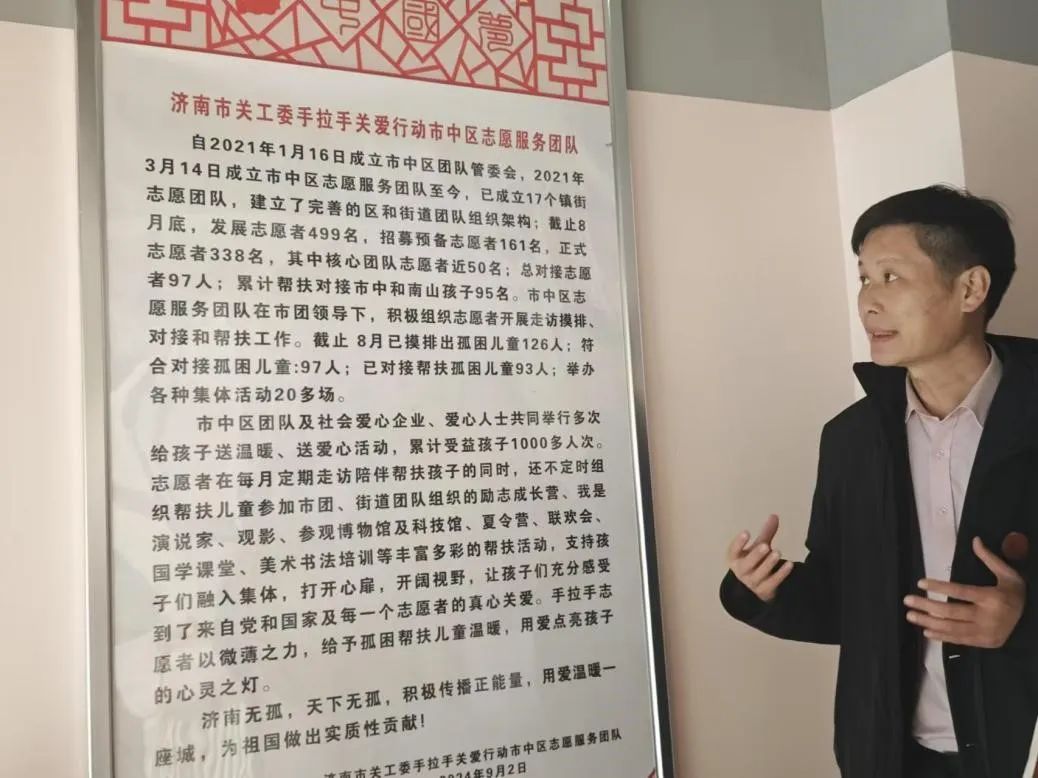 中國夢
济南市关工委手拉手关爱行动市中区志愿服务团队
自2021年1月16日成立市中区团队管委会，2021年
3月14日成立市中区志愿服务团队至今，已成立17个镇街
志愿团队，建立了完善的区和街道团队组织架构；截止8
月底，发展志愿者499名，招募预备志愿者161名，正式
志愿者338名，其中核心团队志愿者近50名；总对接志愿
者97人；累计帮扶对接市中和南山孩子95名。市中区志
愿服务团队在市团领导下，积极组织志愿者开展走访摸排、
对接和帮扶工作。截止 8月已摸排出孤困儿童126人；符
合对接孤困儿童:97人；已对接帮扶孤困儿童93人；举办
各种集体活动20多场。
市中区团队及社会爱心企业、爱心人士共同举行多次
给孩子送温暖、送爱心活动，累计受益孩子1000多人次。
志愿者在每月定期走访陪伴帮扶孩子的同时，还不定时组
织帮扶儿童参加市团、街道团队组织的励志成长营、我是
演说家、观影、参观博物馆及科技馆、夏令营、联欢会、
国学课堂、美术书法培训等丰富多彩的帮扶活动，支持孩
子们融入集体，打开心扉，开阔视野，让孩子们充分感受
到了来自党和国家及每一个志愿者的真心关爱。手拉手志
愿者以微薄之力，给予孤困帮扶儿童温暖，用爱点亮孩子
的心灵之灯。
济南无孤，天下无孤，积极传播正能量，用爱温暖一
座城，为祖国做出实质性贡献！
济南市关工委手拉手关爱行动市中区志愿服务团队
2024年9月2日